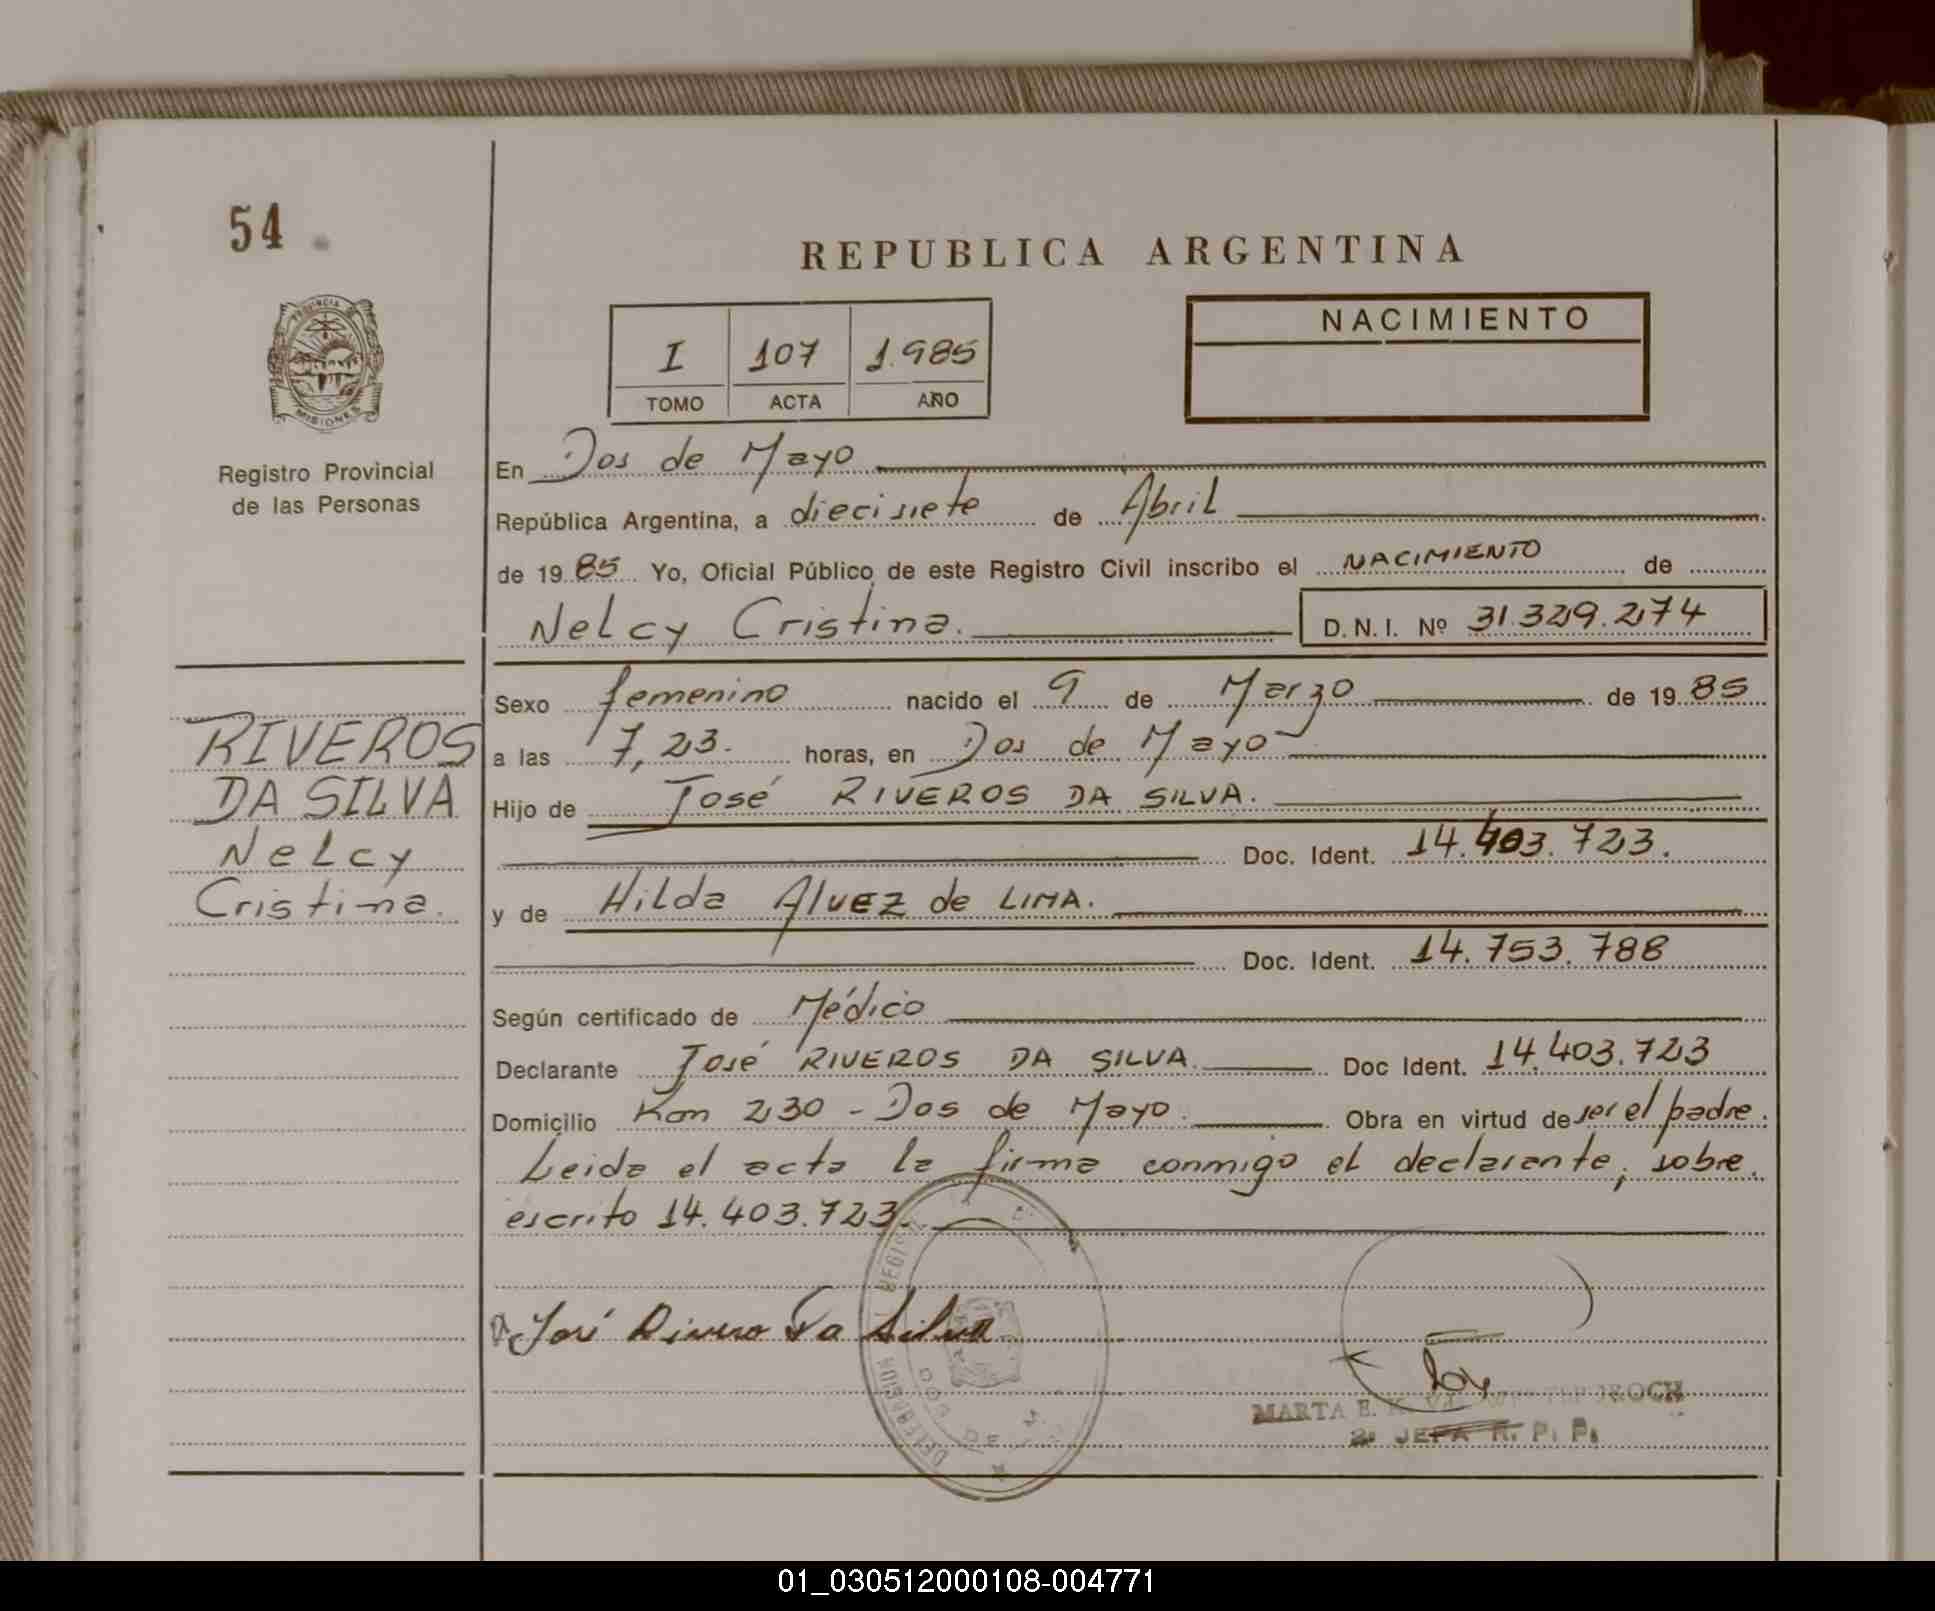 54
REPUBLICA ARGENTINA
PROVINCIA DE
MISIONES
Registro Provincial
de las Personas
I 107 1.985
TOMO ACTA AÑO
NACIMIENTO
En Dos de Mayo
República Argentina, a diecisiete de Abril
de 1985 Yo, Oficial Público de este Registro Civil inscribo el NACIMIENTO de
Nelcy Cristina. D.N.I. Nº 31.329.274
RIVEROS
DA SILVA
Nelcy
Cristina.
Sexo femenino nacido el 9 de Marzo de 1985
a las 7,23. horas, en Dos de Mayo
Hijo de José RIVEROS DA SILVA.
Doc. Ident. 14.403.723.
y de Hilda Alvez de LIMA.
Doc. Ident. 14.753.788
Según certificado de Médico
Declarante José RIVEROS DA SILVA. Doc Ident. 14.403.723
Domicilio Km 230 - Dos de Mayo. Obra en virtud de ser el padre.
Leida el acta la firma conmigo el declarante, sobre.
escrito 14.403.723.
José Rivero Da Silva
MARTA E. K.
JEFA R. P. P.
01_030512000108-004771